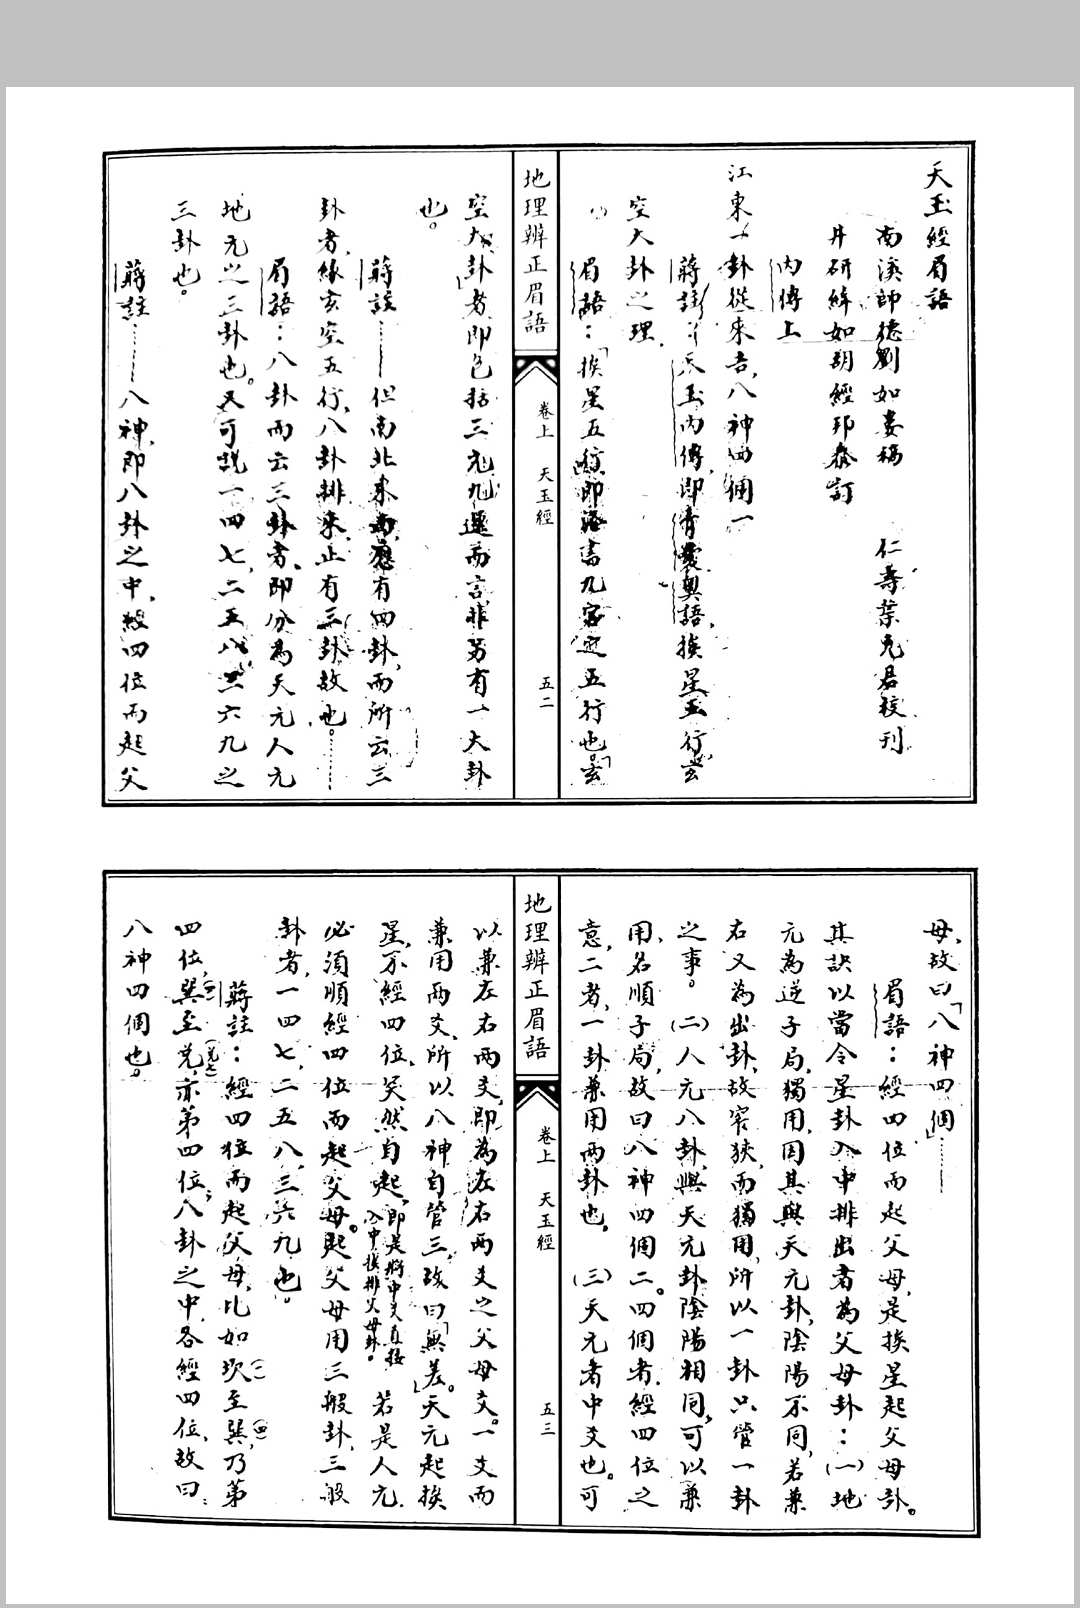 天玉經眉語
南溪師德劉如婁稿 仁壽葉兔君校刊
井研緯如胡經邦參訂
內傳上
江東一卦從來吉,八神四個一
蔣註:天玉內傳,即青囊奧語,挨星五行,玄
空大卦之理.
眉語:「挨星五行」即洛書九宮定五行也。「玄
空大卦」者,即包括三元九運而言,非另有一大卦
也。
地理辨正眉語 卷上 天玉經 五二
蔣註——但南北東西,應有四卦,而所云三
卦者,緣玄空五行,八卦排來,止有三卦故也。……
眉語:八卦而云三卦者,即分為天元人元
地元之三卦也。又可說一四七,二五八,三六九之
三卦也。
蔣註——八神,即八卦之中,經四位而起父
母,故曰「八神四個」——
眉語:經四位而起父母,是挨星起父母卦。
其訣以當令星卦入中排出者為父母卦:(一)地
元為逆子局,獨用,因其與天元卦,陰陽不同,若兼
右又為出卦,故窄狹,而獨用,所以一卦只管一卦
之事。(二)人元八卦,與天元卦陰陽相同,可以兼
用,名順子局,故曰八神四個二。四個者,經四位之
意,二者,一卦兼用兩卦也。(三)天元者中爻也。可
地理辨正眉語 卷上 天玉經 五三
以兼左右兩爻,即為左右兩爻之父母爻。一爻而
兼用兩爻,所以八神自管三,故曰「無差」。天元起挨
星,不經四位,突然自起,即是將中爻直接入中挨排父母卦。若是人元
必須順經四位而起父母。起父母用三般卦,三般
卦者,一四七,二五八,三六九也。
蔣註:經四位而起父母,比如坎至巽,(一)(四)乃第
四位,巽至兌,(四)(兌七)亦第四位,八卦之中,各經四位,故曰:
八神四個也。